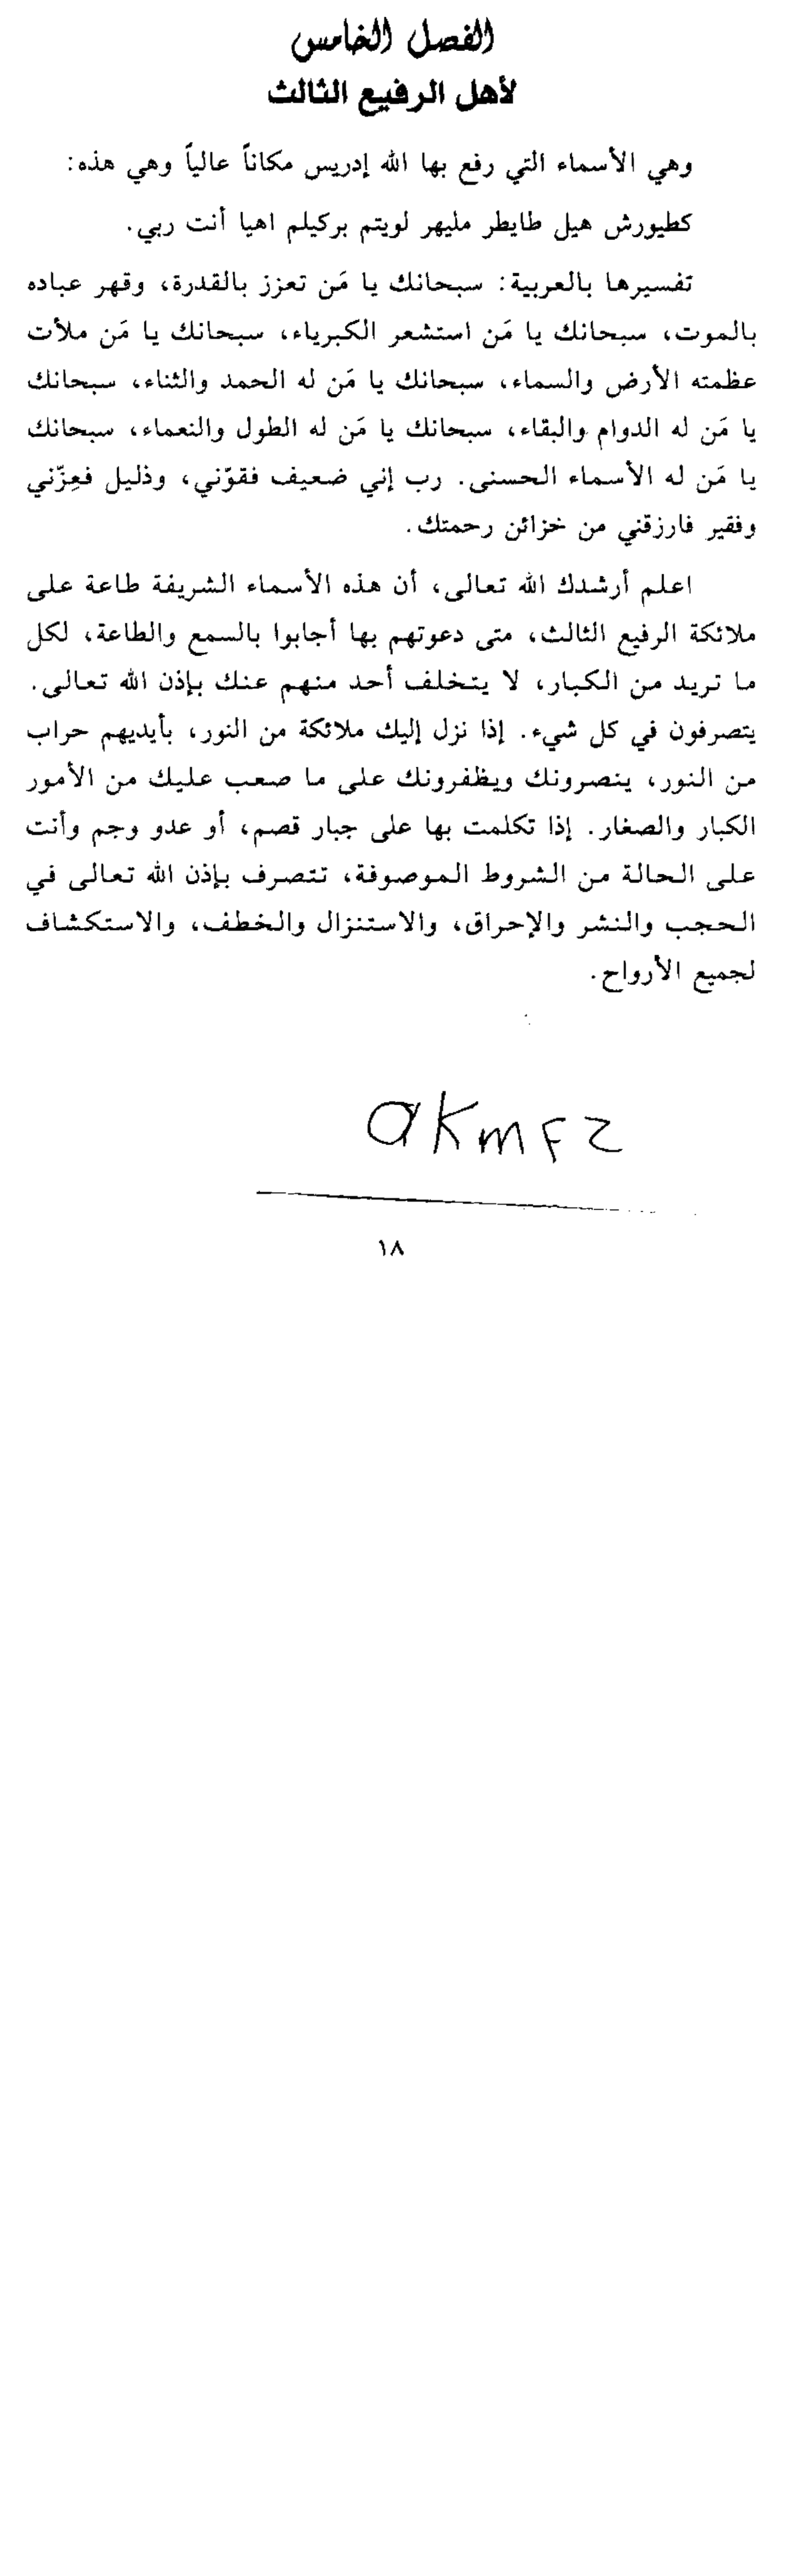 الفصل الخامس
لأهل الرفيع الثالث
وهي الأسماء التي رفع بها الله إدريس مكاناً عالياً وهي هذه:
كطيورش هيل طايطر مليهر لويتم بركيلم اهيا أنت ربي.
تفسيرها بالعربية: سبحانك يا مَن تعزز بالقدرة، وقهر عباده
بالموت، سبحانك يا مَن استشعر الكبرياء، سبحانك يا مَن ملأت
عظمته الأرض والسماء، سبحانك يا مَن له الحمد والثناء، سبحانك
يا مَن له الدوام والبقاء، سبحانك يا مَن له الطول والنعماء، سبحانك
يا مَن له الأسماء الحسنى. رب إني ضعيف فقوّني، وذليل فعِزّني
وفقير فارزقني من خزائن رحمتك.
اعلم أرشدك الله تعالى، أن هذه الأسماء الشريفة طاعة على
ملائكة الرفيع الثالث، متى دعوتهم بها أجابوا بالسمع والطاعة، لكل
ما تريد من الكبار، لا يتخلف أحد منهم عنك بإذن الله تعالى.
يتصرفون في كل شيء. إذا نزل إليك ملائكة من النور، بأيديهم حراب
من النور، ينصرونك ويظفرونك على ما صعب عليك من الأمور
الكبار والصغار. إذا تكلمت بها على جبار قصم، أو عدو وجم وأنت
على الحالة من الشروط الموصوفة، تتصرف بإذن الله تعالى في
الحجب والنشر والإحراق، والاستنزال والخطف، والاستكشاف
لجميع الأرواح.
akmfz
١٨